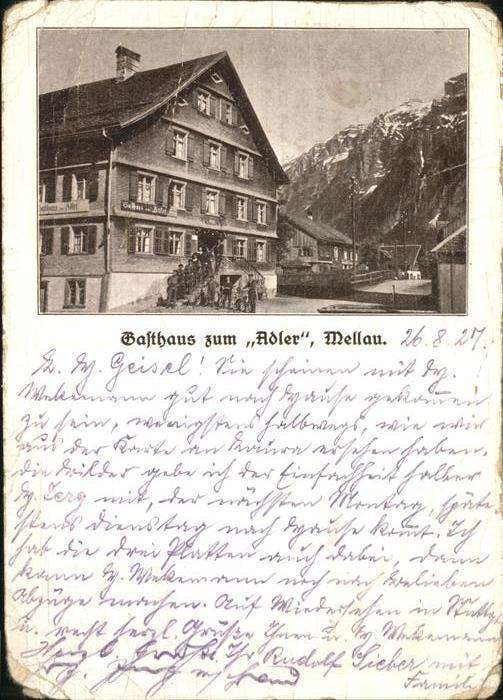 Gasthaus zum Adler
Gasthaus zum „Adler“, Mellau. 26.8.27.
L. H. Geisel! Sie scheinen mit H.
Wekemann gut nach Hause gekommen
zu sein, wenigstens halbwegs, wie wir
aus der Karte an Laura ersehen haben.
Die Bilder gebe ich der Einfachheit halber
H. Jerg mit, der nächsten Montag, späte-
stens Dienstag nach Hause kommt. Ich
hab die drei Platten auch dabei, dann
kann H. Wekemann noch nach Belieben
Abzüge machen. Auf Wiedersehen in Stuttg.
u. recht herzl. Grüße Ihnen u. H. Wekemann
Ihr Rudolf Sieber mit
Familie
Herzl. Grüße